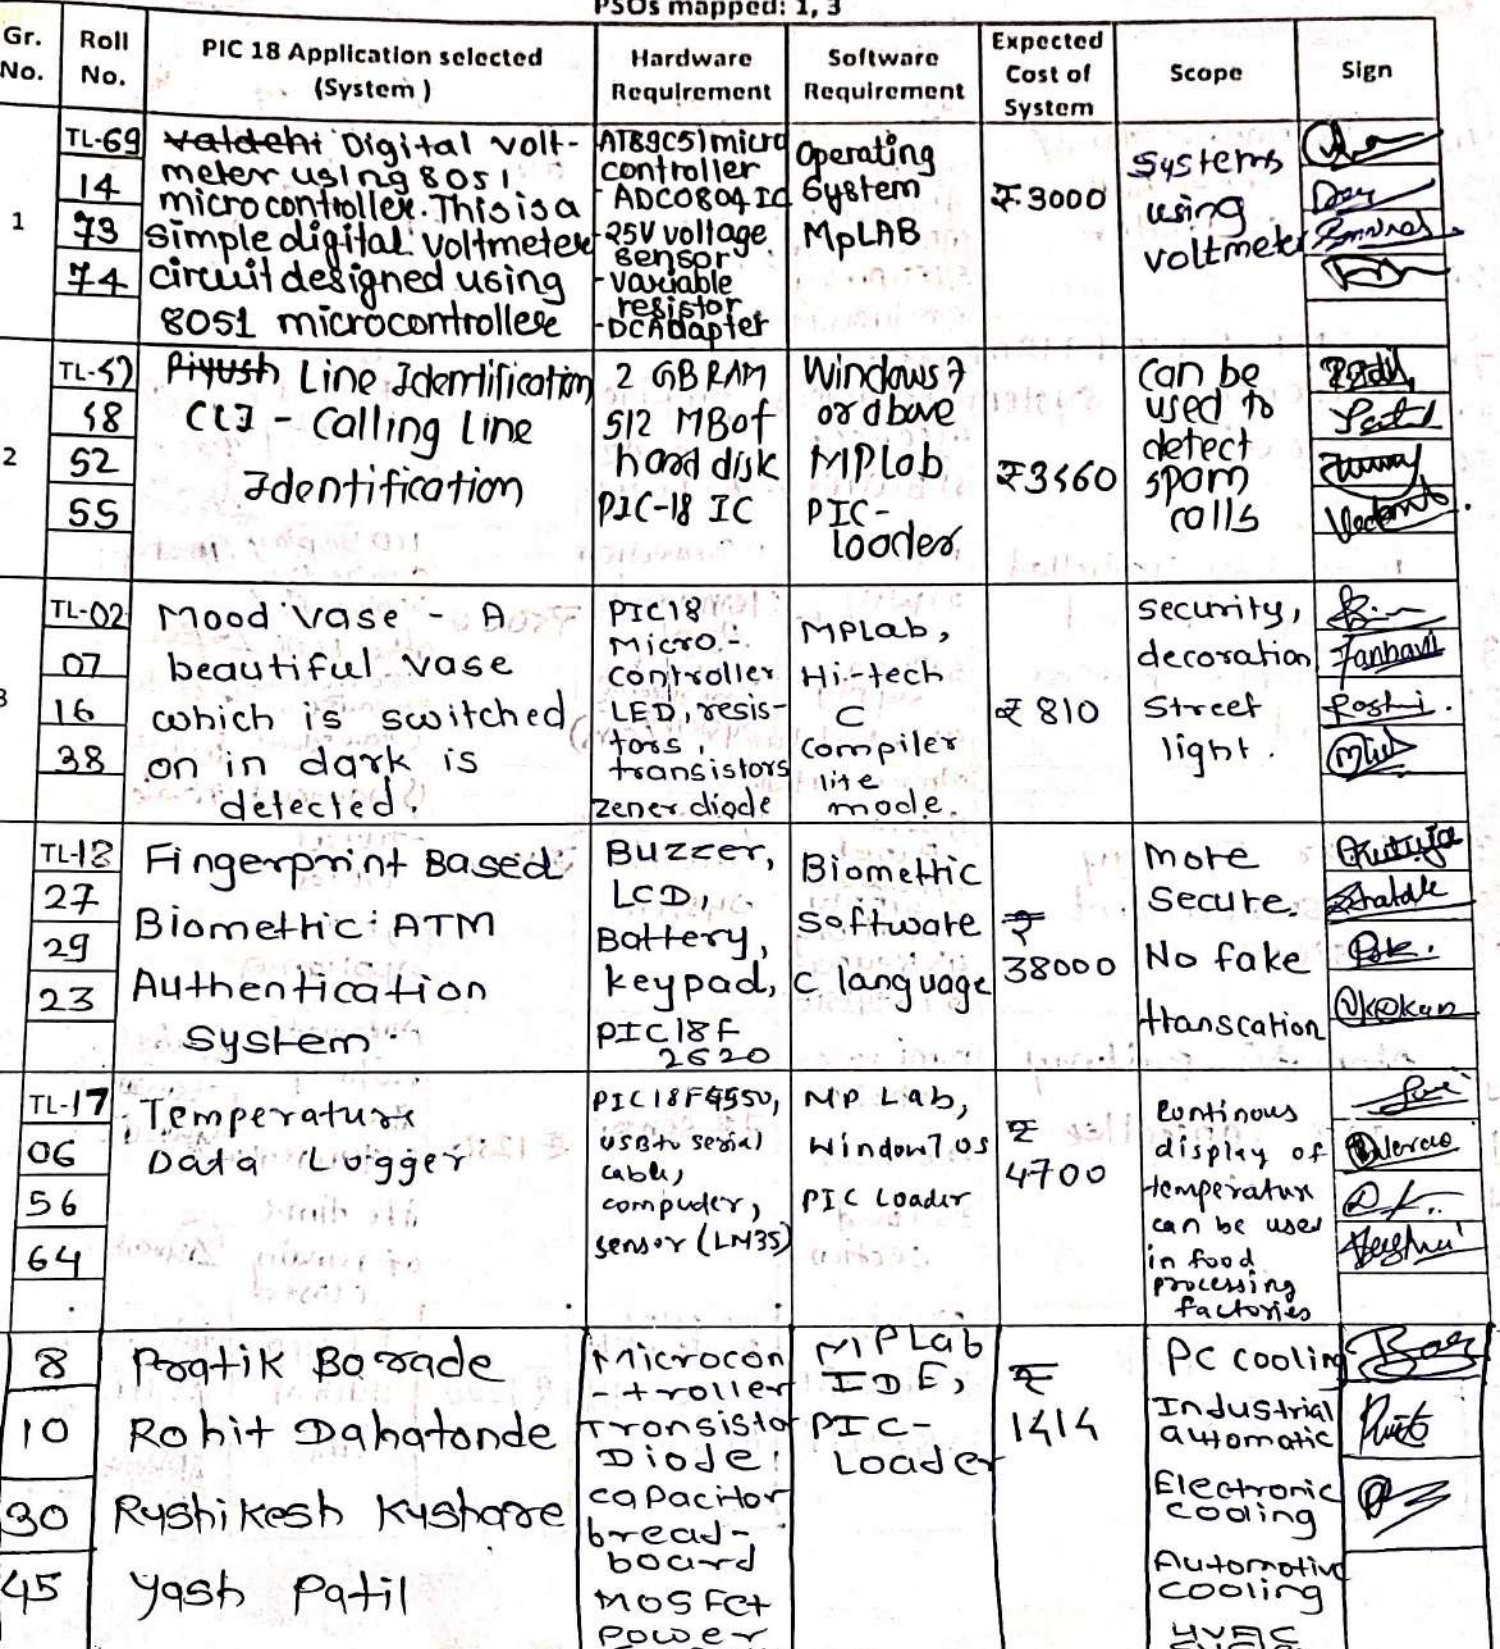 PSOs mapped: 1, 3
Gr. No.
Roll No.
PIC 18 Application selected (System )
Hardware Requirement
Software Requirement
Expected Cost of System
Scope
Sign
1
TL-69
14
73
74
Digital volt-
meter using 8051
microcontroller. This is a
simple digital voltmeter
circuit designed using
8051 microcontroller
AT89C51 micro
controller
- ADC0804 IC
- 25V voltage
sensor
- variable
resistor
- DC Adapter
Operating
System
MpLAB
₹ 3000
Systems
using
voltmeter
2
TL-57
58
52
55
Piyush Line Identification
CLI - Calling Line
Identification
2 GB RAM
512 MB of
hard disk
PIC-18 IC
Windows 7
or above
MPlab
PIC-
loader
₹3560
Can be
used to
detect
spam
calls
3
TL-02
07
16
38
Mood Vase - A
beautiful vase
which is switched
on in dark is
detected.
PIC18
Micro-
controller
LED, resis-
tors,
transistors
zener diode
MPLab,
Hi-tech
C
compiler
lite
mode.
₹ 810
Security,
decoration
Street
light.
TL-18
27
29
23
Fingerprint Based
Biometric ATM
Authentication
System.
Buzzer,
LCD,
Battery,
keypad,
PIC18F
2620
Biometric
Software
C language
₹
38000
More
Secure.
No fake
transcation
TL-17
06
56
64
Temperature
Data Logger
PIC18F4550,
USB to serial
cable,
computer,
sensor (LM35)
MP Lab,
Window7 OS
PIC Loader
₹
4700
Continous
display of
temperature
can be used
in food
processing
factories
8
10
30
45
Pratik Borade
Rohit Dahatonde
Ryshikesh Kyshare
Yash Patil
Microcon
-troller
Transistor
Diode
capacitor
bread-
board
MOSFET
Power
MPLab
IDE,
PIC-
Loader
₹
1414
PC cooling
Industrial
automatic
Electronic
cooling
Automotive
cooling
HVAC